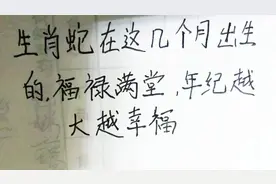 生肖蛇在这几个月出生
的,福禄满堂,年纪越
大越幸福